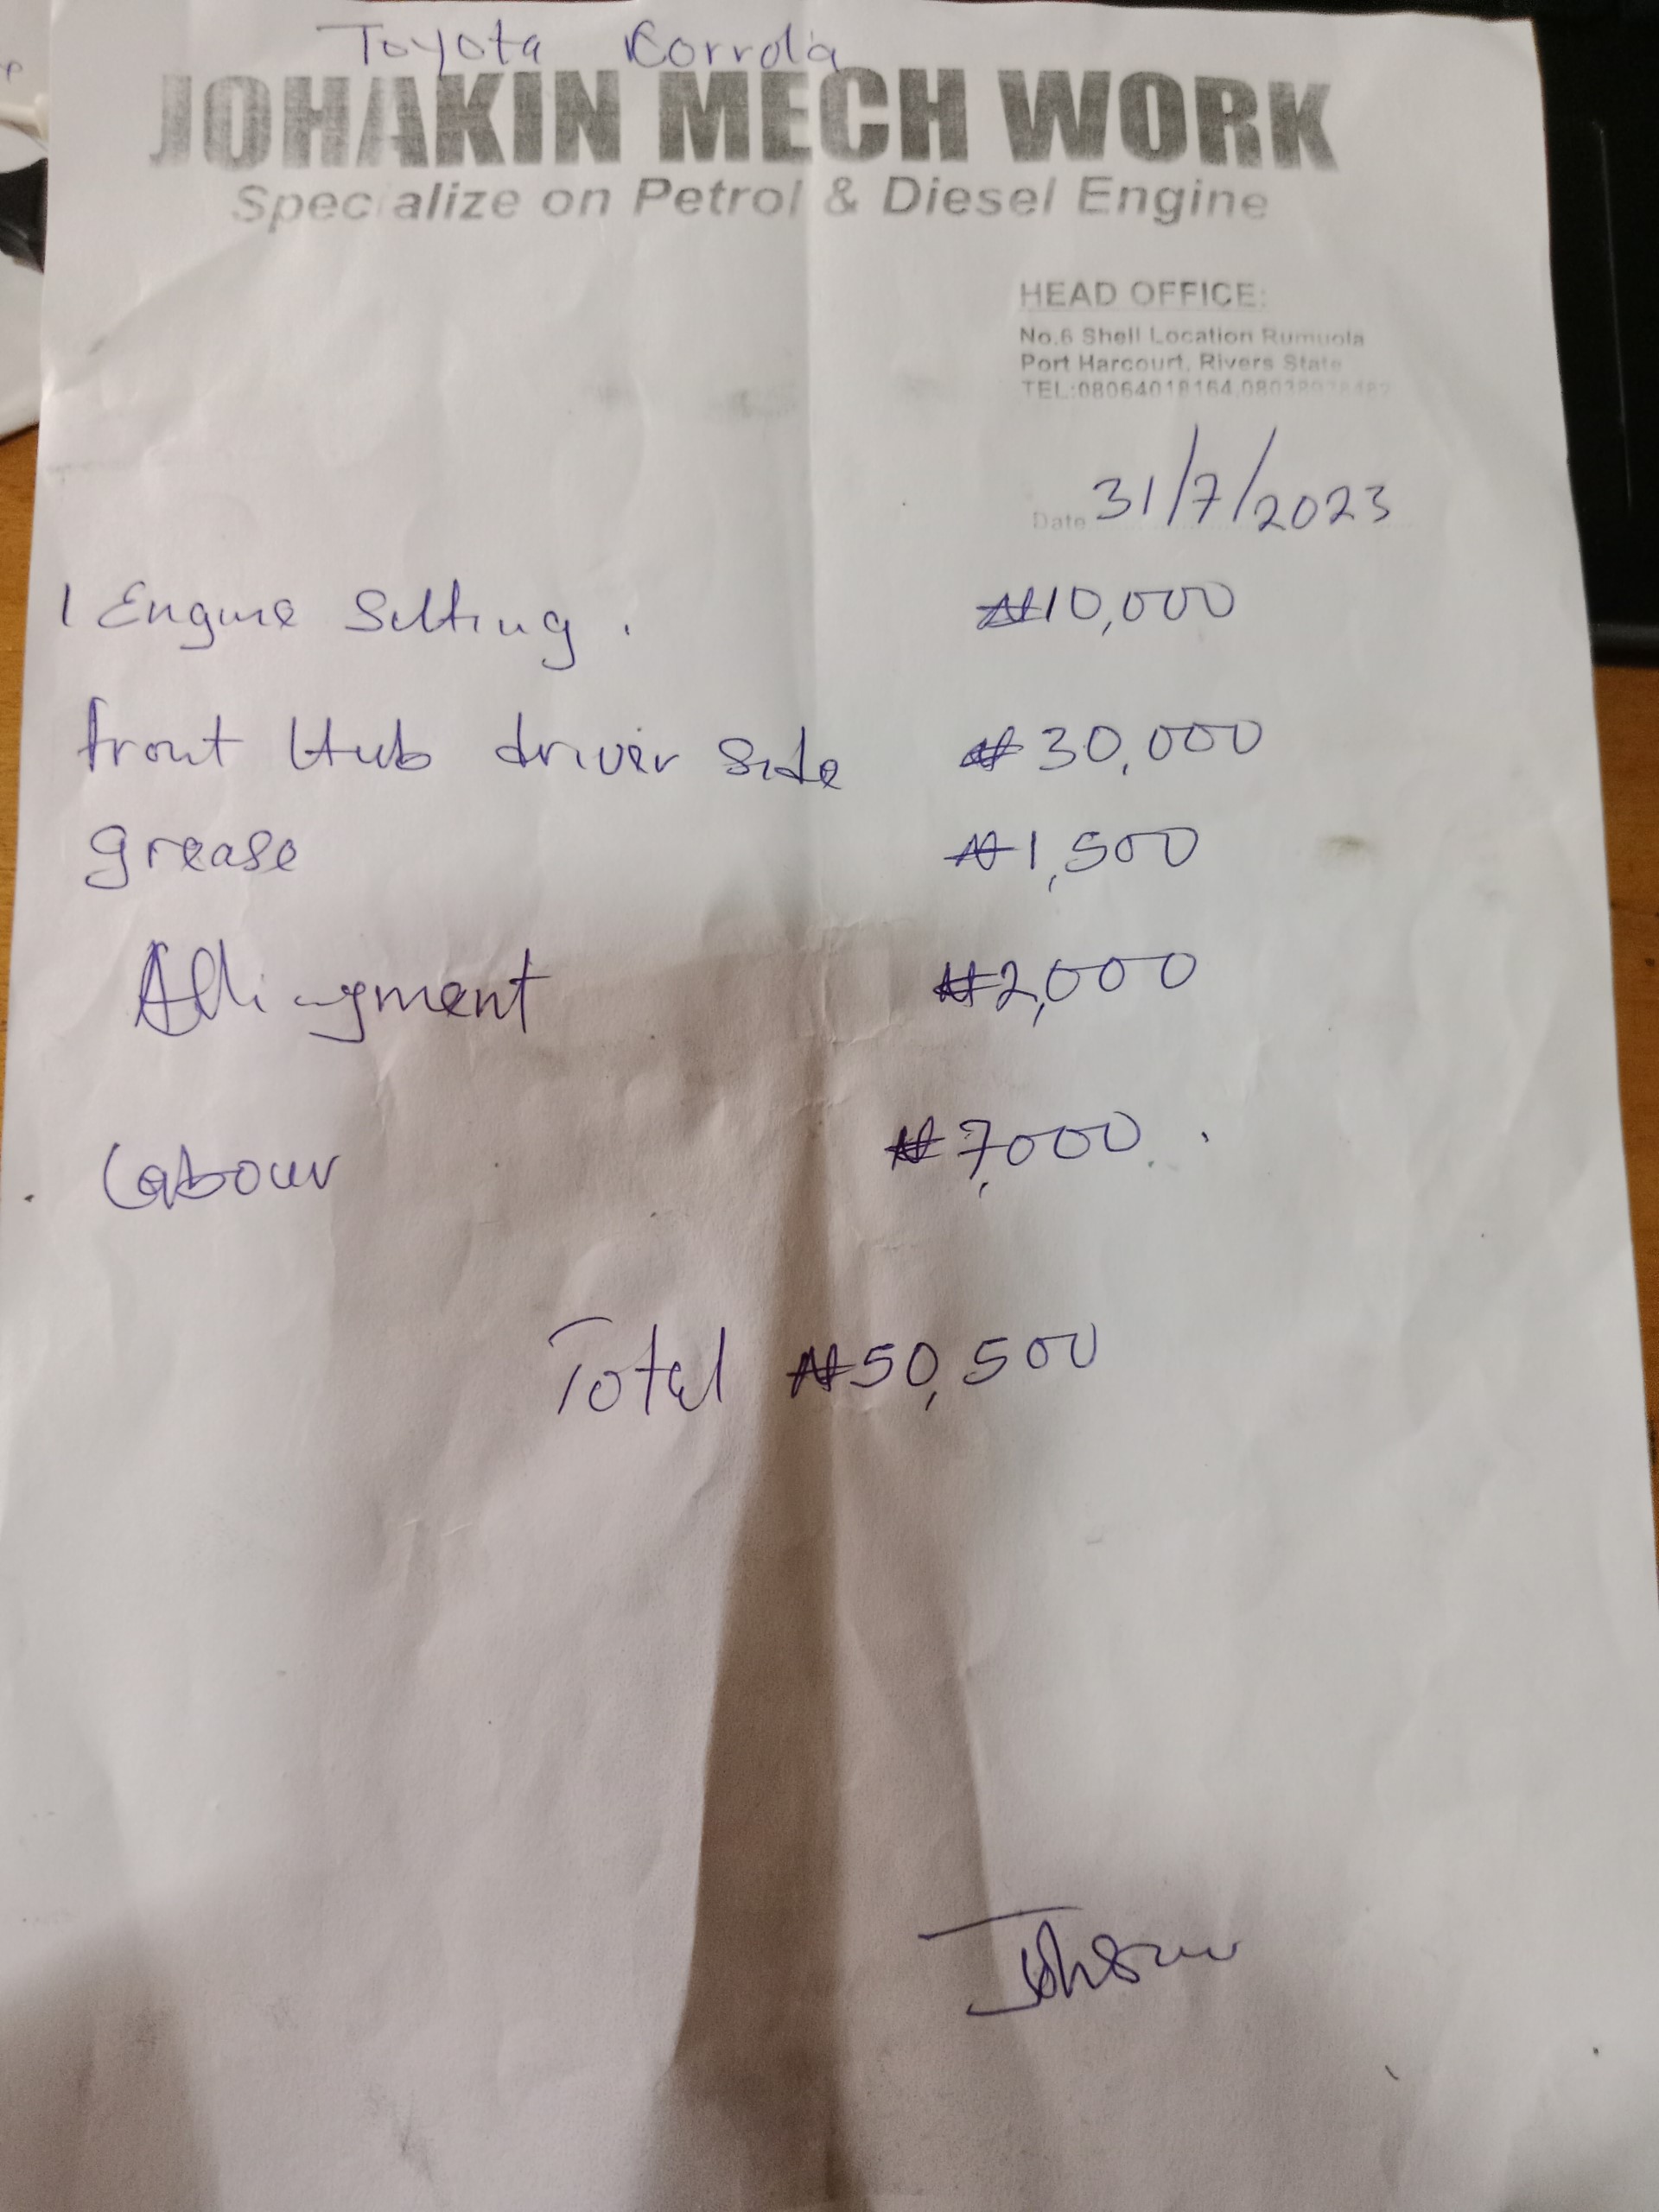 Toyota Corrola
JOHAKIN MECH WORK
Specialize on Petrol & Diesel Engine
HEAD OFFICE:
No.6 Shell Location Rumuola
Port Harcourt, Rivers State
TEL:08064018164,
Date 31/7/2023
1 Engine Setting. ₦10,000
front Hub driver Side ₦30,000
grease ₦1,500
Allingment ₦2,000
Labour ₦7,000.
Total ₦50,500
Johson